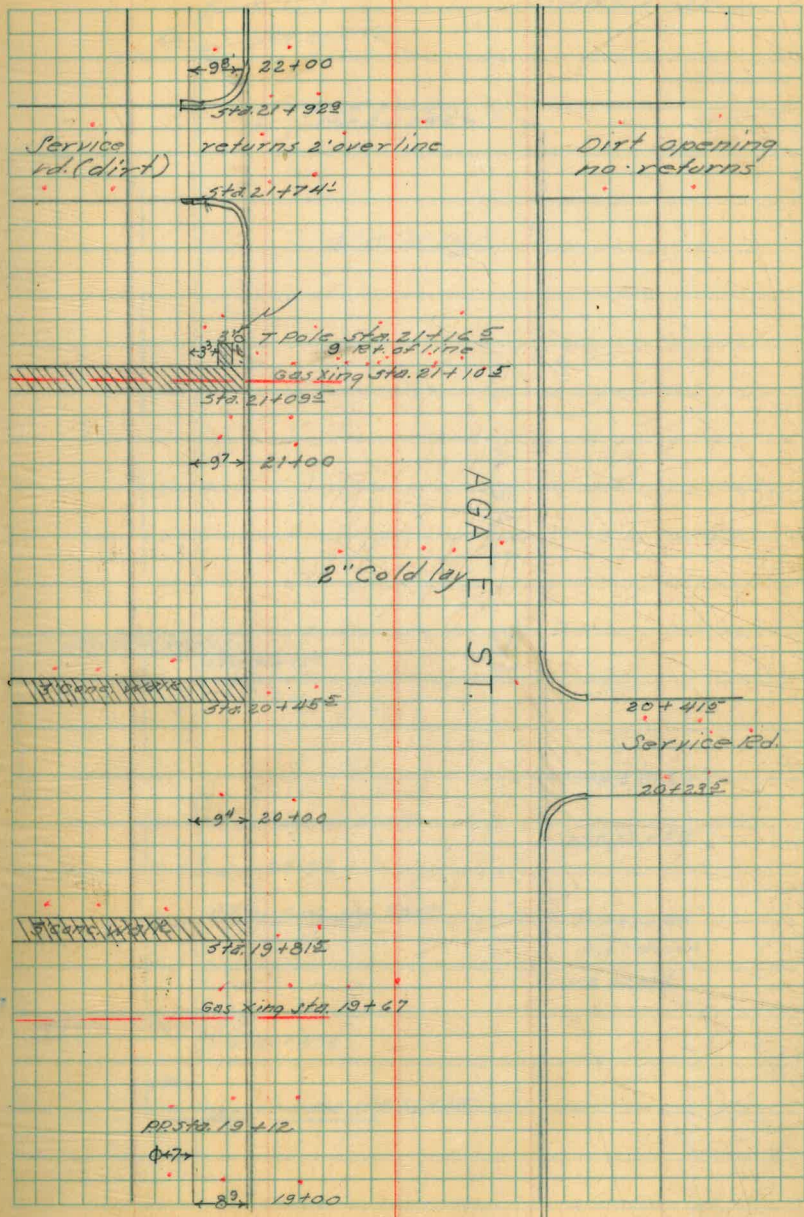 9⁸ 22+00
Sta. 21+92⁹
Service
rd. (dirt)
returns 2' overline
Dirt opening
no returns
Sta 21+74¹
T Pole sta. 21+16⁵
3³
9 Rt. of line
Gas Xing sta. 21+10⁵
Sta. 21+09⁵
9⁷ 21+00
AGATE ST.
2" Cold lay
3' Conc. Walk
Sta. 20+45⁵
20+41⁵
Service Rd.
20+23⁵
9⁴ 20+00
3' Conc. Walk
Sta. 19+81⁵
Gas Xing sta. 19+67
P.P. sta. 19+12
7
8⁹ 19+00